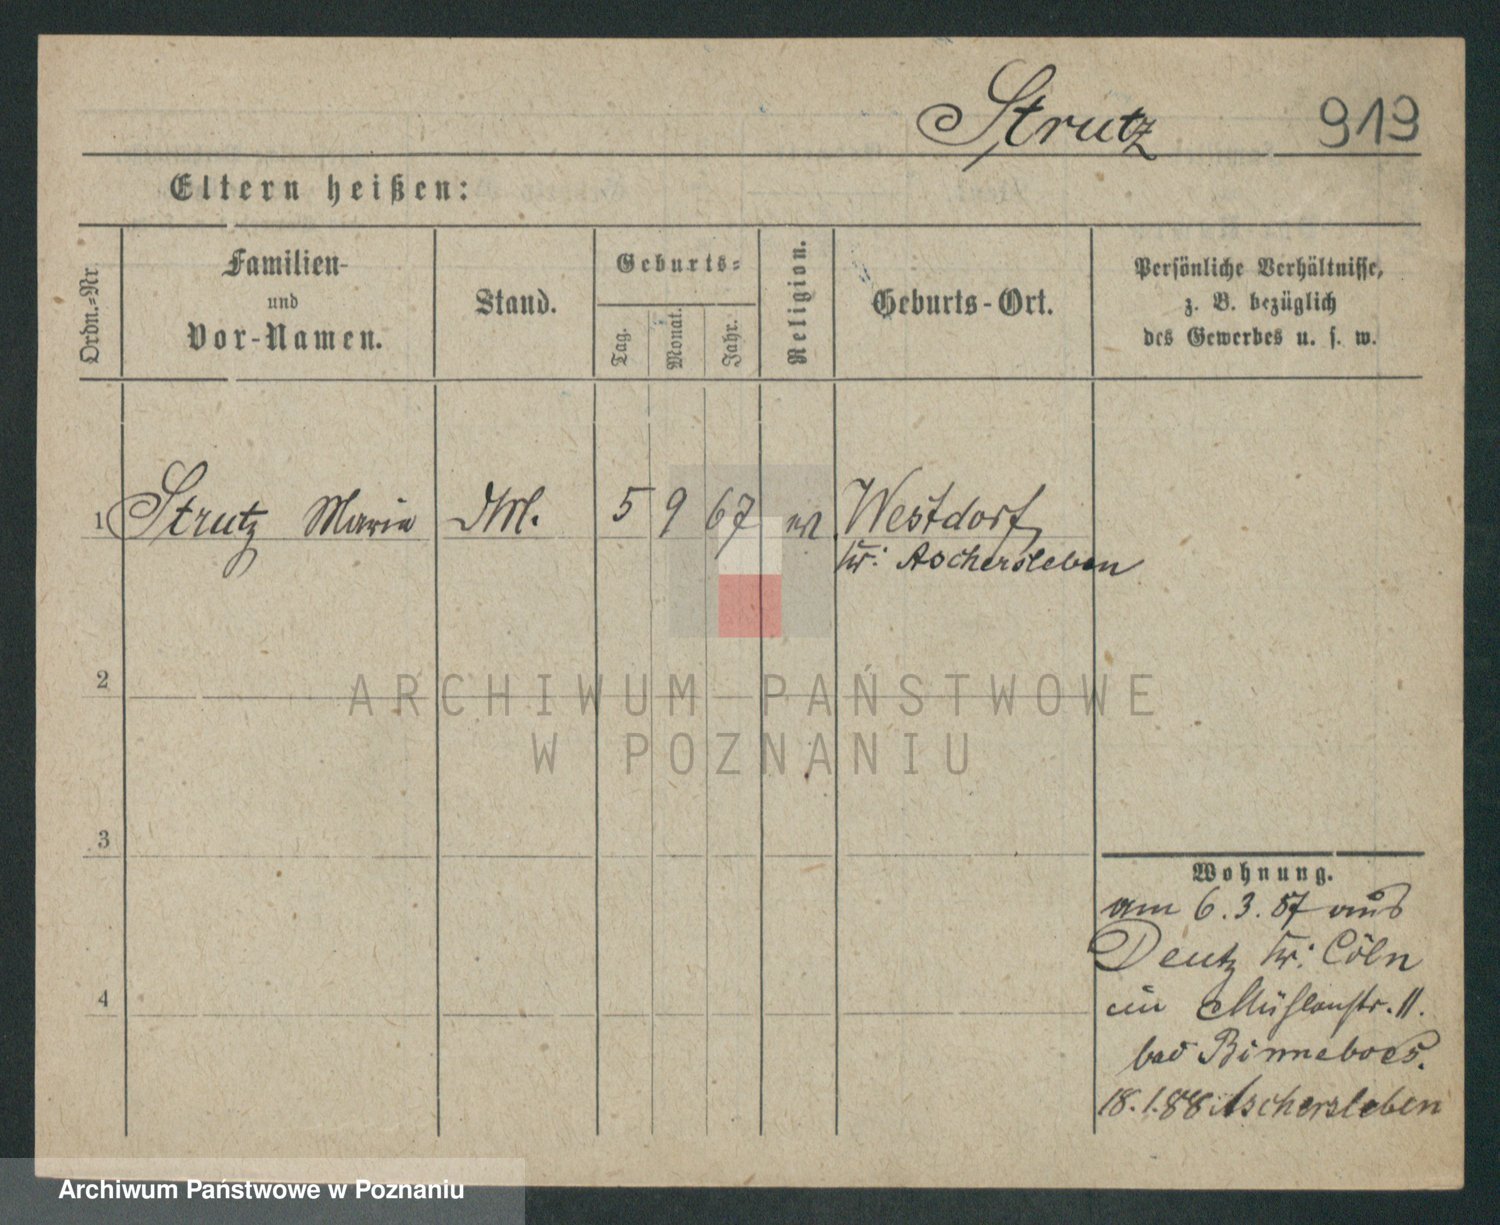 Strutz 919
Eltern heißen:
Ordn.=Nr.
Familien-
und
Vor-Namen.
Stand.
Geburts=
Tag.
Monat.
Jahr.
Religion.
Geburts-Ort.
Persönliche Verhältnisse,
z. B. bezüglich
des Gewerbes u. s. w.
1 Strutz Marie 5 9 67 Westdorf
Kr: Aschersleben
2
3
4
Wohnung.
am 6.3.87 aus
Deutz Kr: Cöln
in Mühlenstr. 11.
bei
18.1.88 Aschersleben
ARCHIWUM PAŃSTWOWE
W POZNANIU
Archiwum Państwowe w Poznaniu